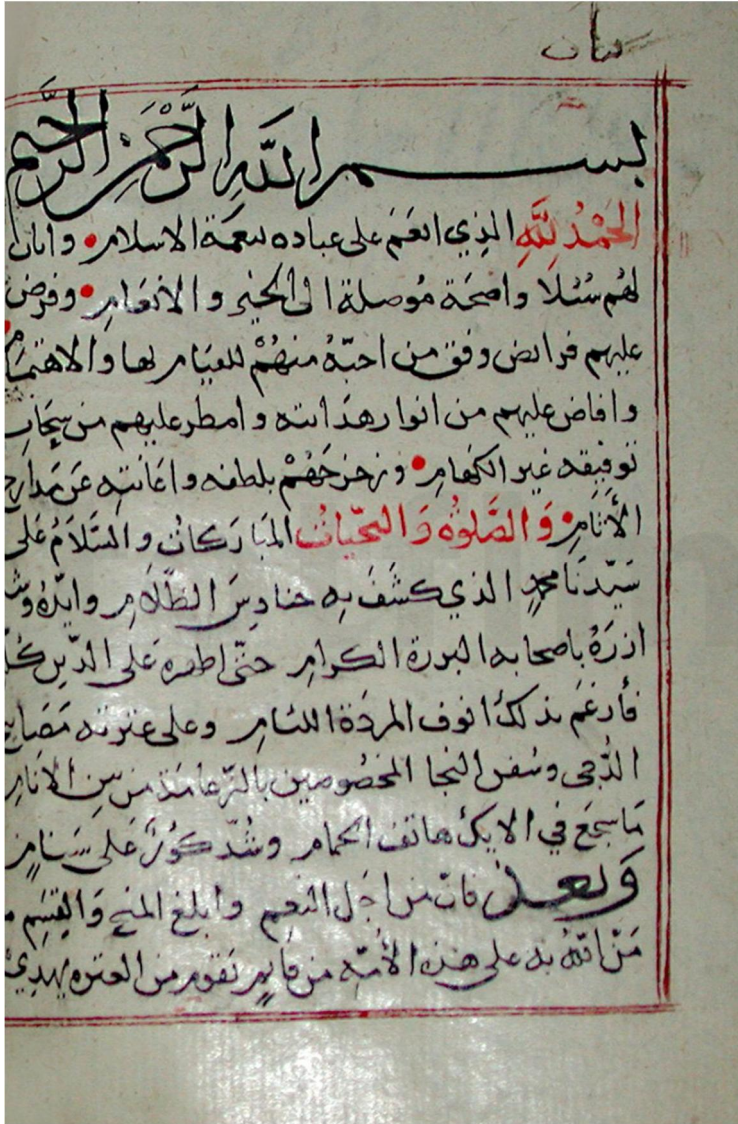 بيان
بسم الله الرَّحْمَنِ الرَّحيم
الحَمْدُ لِلَّهِ الذِي انعَمَ على عباده بنعمة الاسلام • وابان
لهُم سُبُلًا واضحَة مُوصلة الى الخير والانعَام • وفرض
عليهم فرائض وفق من احبّهُ منهُمْ للقيام لها والاهتمام
وافاض عليهم من انوار هدَايته وامطر عليهم من سِحَاب
توفيقه غير الكهَامِ • وزحزحَهُمْ بلطفه واعَانتِه عَن مَدارج
الأَثَامِ • وَالصَّلوٰة وَالتحيّاتُ المبَارَكاتُ والسَّلَامُ عَلى
سَيّدنَا محمدٍ الذي كشَفَ به حنادِسَ الظَّلَامِ وايّدهُ وشدّ
ازرَهُ باصحابه البررة الكرامِ حتّى اظهره عَلى الدّين كُلّه
فأرغَمَ بذلكَ انوف المردَة اللئام وعلى عترته مَصَابيح
الدُّجى وسُفن النجا المخصُوصين بالزّعامَة من بين الانَام
مَا سجَعَ في الايك هاتف الحمام وشُدّ كُوْرٌ عَلى سَنامٍ
وَبعد فانّ من اجَل النعِم وابلغ المنح وَالقِسَم
مَنّ اللهُ به على هذه الأمّة من قايمٍ يقوم من العتره يهدِي